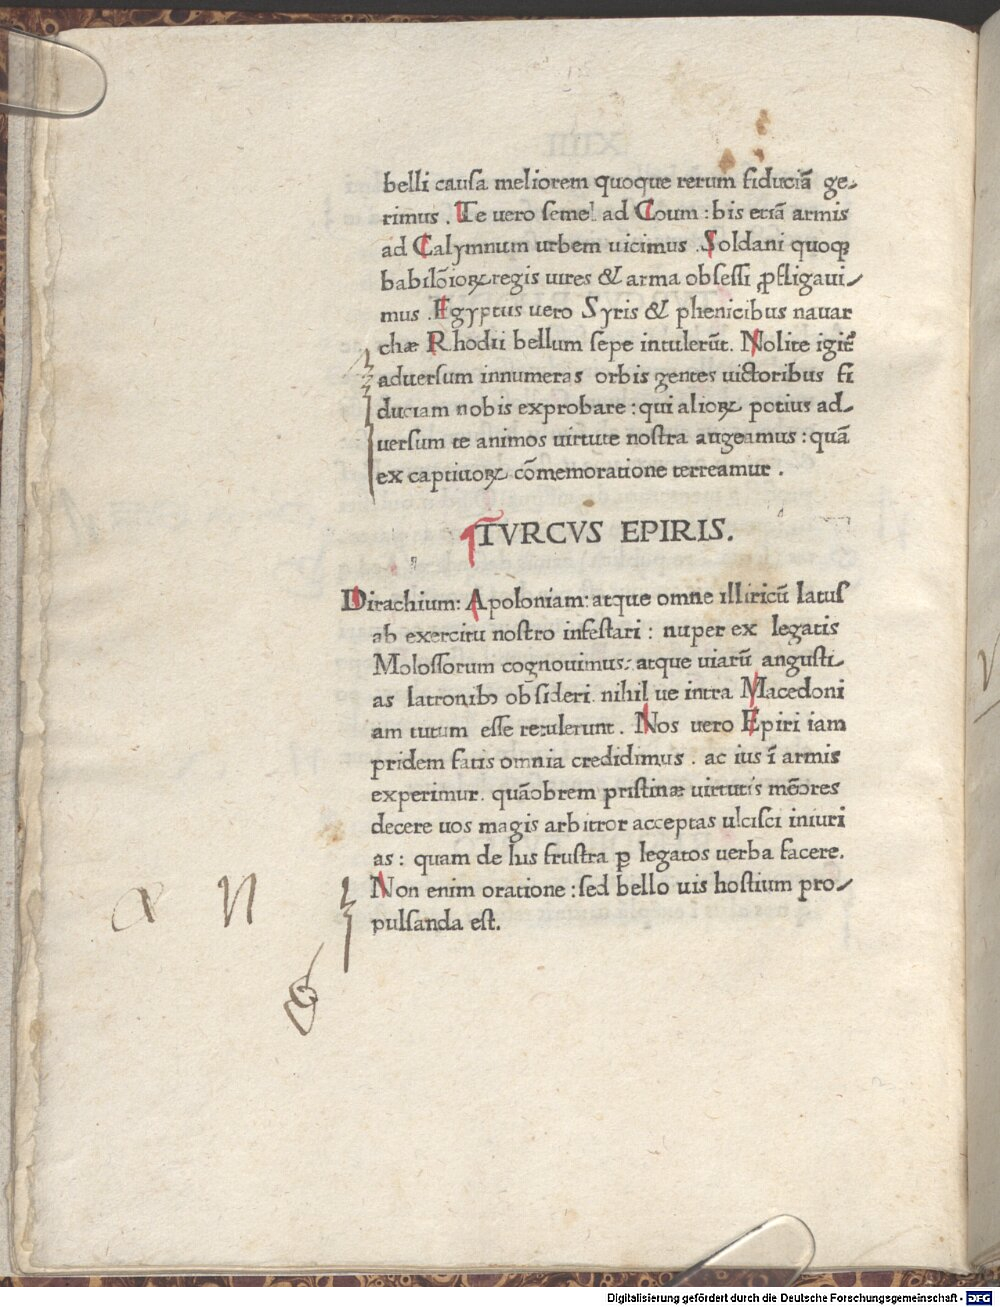 belli cauſa meliorem quoque rerum fiduciā ge-
rimus . Te uero ſemel ad Coum : bis etiā armis
ad Calymnum urbem uicimus . Soldani quoqꝫ
babilōioꝝ regis uires & arma obſeſſi ꝓfligaui-
mus . Egyptus uero Syris & phenicibus nauar
chæ Rhodii bellum ſepe intulerūt. Nolite igit᷑
aduerſum innumeras orbis gentes uictoribus fi
duciam nobis exprobare : qui alioꝝ potius ad-
uerſum te animos uirtute noſtra augeamus : quā
ex captiuoꝝ cōmemoratione terreamur .
TVRCVS EPIRIS.
Dirachium: Apoloniam: atque omne illiricū latuſ
ab exercitu noſtro infeſtari : nuper ex legatis
Moloſſorum cognouimus: atque uiarū anguſti-
as latronibꝫ obſideri. nihil ue intra Macedoni
am tutum eſſe retulerunt . Nos uero Epiri iam
pridem fatis omnia credidimus . ac ius ī armis
experimur. quāobrem priſtinæ uirtutis mēores
decere uos magis arbitror acceptas ulciſci iniuri
as : quam de his fruſtra ꝑ legatos uerba facere.
Non enim oratione : ſed bello uis hoſtium pro-
pulſanda eſt.
Digitalisierung gefördert durch die Deutsche Forschungsgemeinschaft - DFG